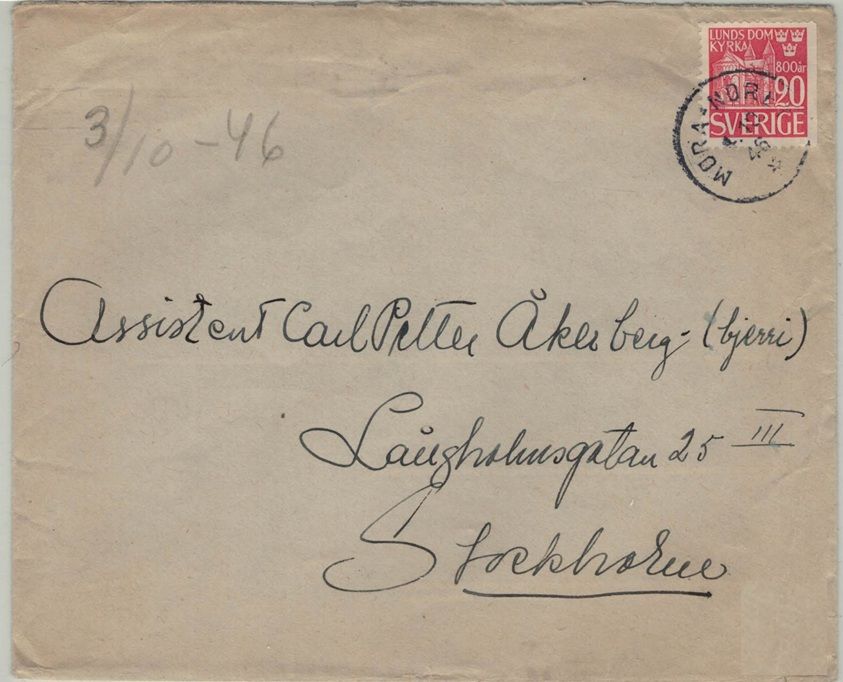 LUNDS DOM
KYRKA
800 år
20
SVERIGE
MORA * NORET
46
3/10 - 46
Assistent Carl Petter Åkerberg - (bjerri)
Långholmsgatan 25 III
Stockholm